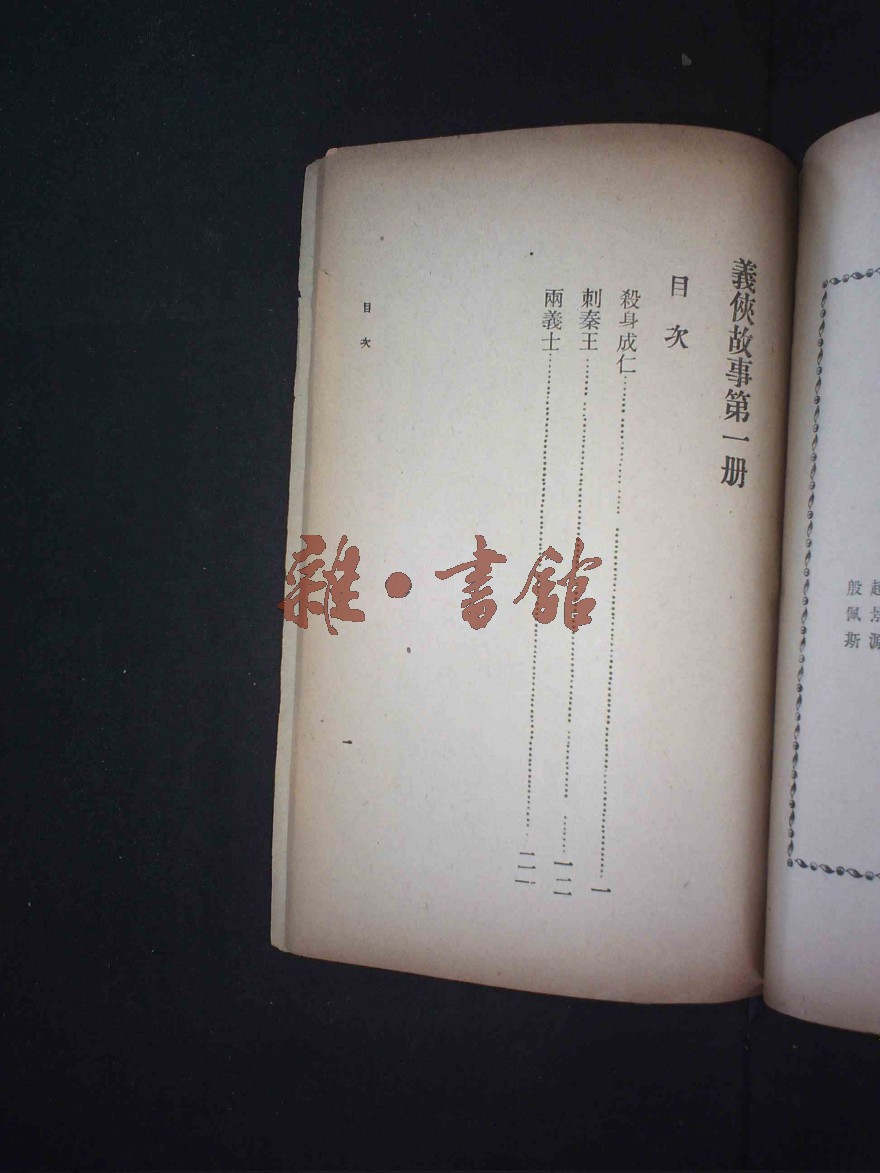 殷佩斯
義俠故事第一册
目次
殺身成仁……一
刺秦王……一二
兩義士……二一
目次
一
雜·書館